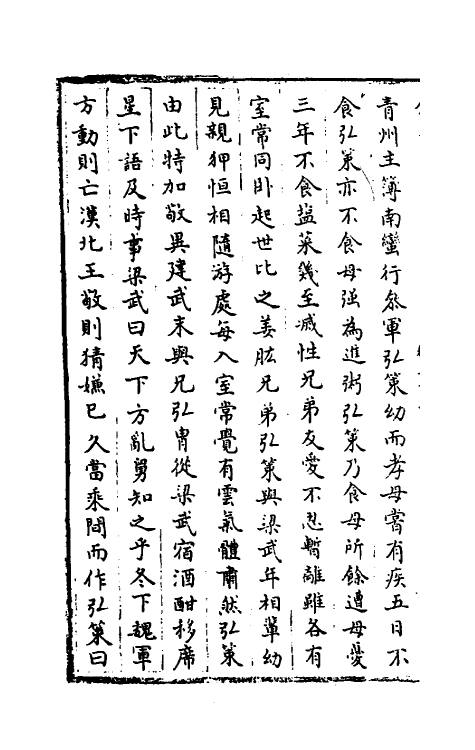 青州主簿南蠻行叅軍弘策幼而孝母嘗有疾五日不
食弘策亦不食母强為進粥弘策乃食母所餘遭母憂
三年不食鹽菜幾至滅性兄弟友愛不忍暫離雖各有
室常同卧起世比之姜肱兄弟弘策與梁武年相輩幼
見親狎恒相隨游處每入室常覺有雲氣體肅然弘策
由此特加敬異建武末與兄弘胄從梁武宿酒酣移席
星下語及時事梁武曰天下方亂舅知之乎冬下魏軍
方動則亡漢北王敬則猜嫌已久當乘間而作弘策曰